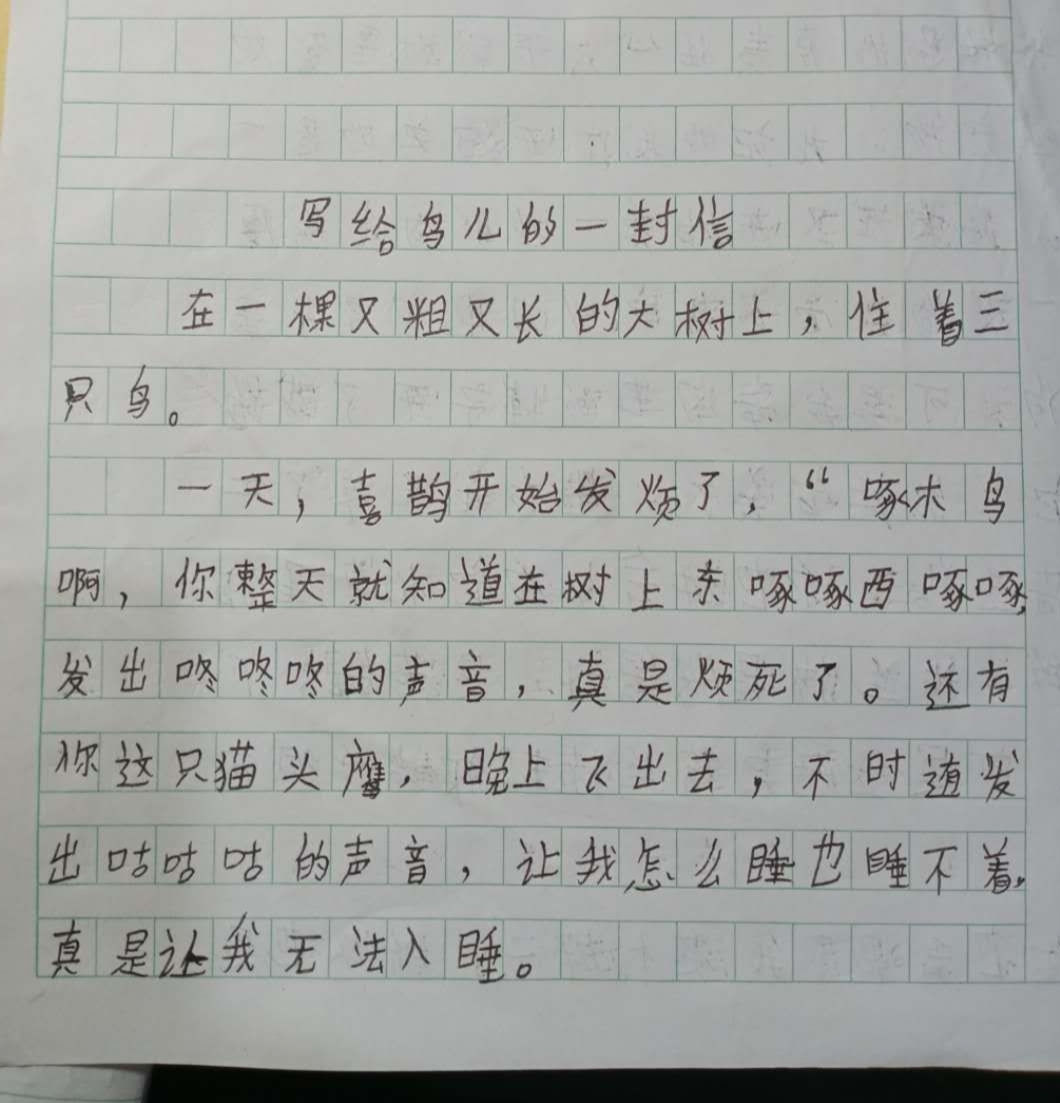 写给鸟儿的一封信
在一棵又粗又长的大树上，住着三
只鸟。
一天，喜鹊开始发烦了，“啄木鸟
啊，你整天就知道在树上东啄啄西啄啄，
发出咚咚咚的声音，真是烦死了。还有
你这只猫头鹰，晚上飞出去，不时道发
出咕咕咕的声音，让我怎么睡也睡不着，
真是让我无法入睡。